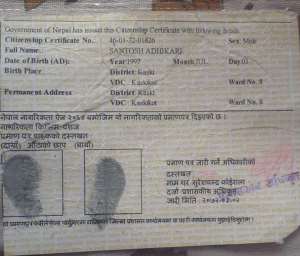 Government of Nepal has issued this Citizenship Certificate with following details
Citizenship Certificate No.. 46-01-72-01826 Sex. Male
Full Name: SANTOSH ADHIKARI
Date of Birth (AD): Year:1997 Month:JUL Day:03
Birth Place District: Kaski
VDC: Kaskikot Ward No. 8
Permanent Address District: Kaski
VDC: Kaskikot Ward No. 8
नेपाल नागरिकता ऐन २०६३ बमोजिम यो नागरिकताको प्रमाणपत्र दिइएको छ ।
नागरिकता किसिम: वंशज
प्रमाण पत्र धारकको दस्तखत
(दायाँ) औंठाको छाप (बायाँ)
प्रमाण पत्र जारी गर्ने अधिकारीको
दस्तखत
नाम थर
जारी मिति